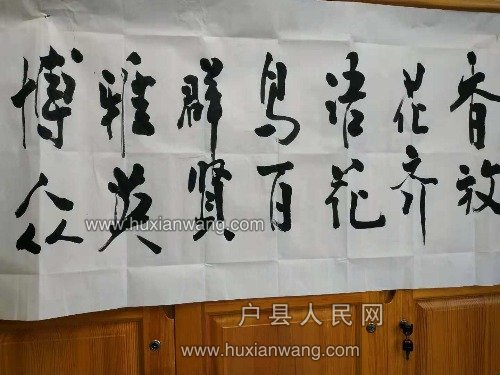 博雅群鸟语花香
众英贤百花齐放
www.huxianwang.com
户县人民网
www.huxianwang.com